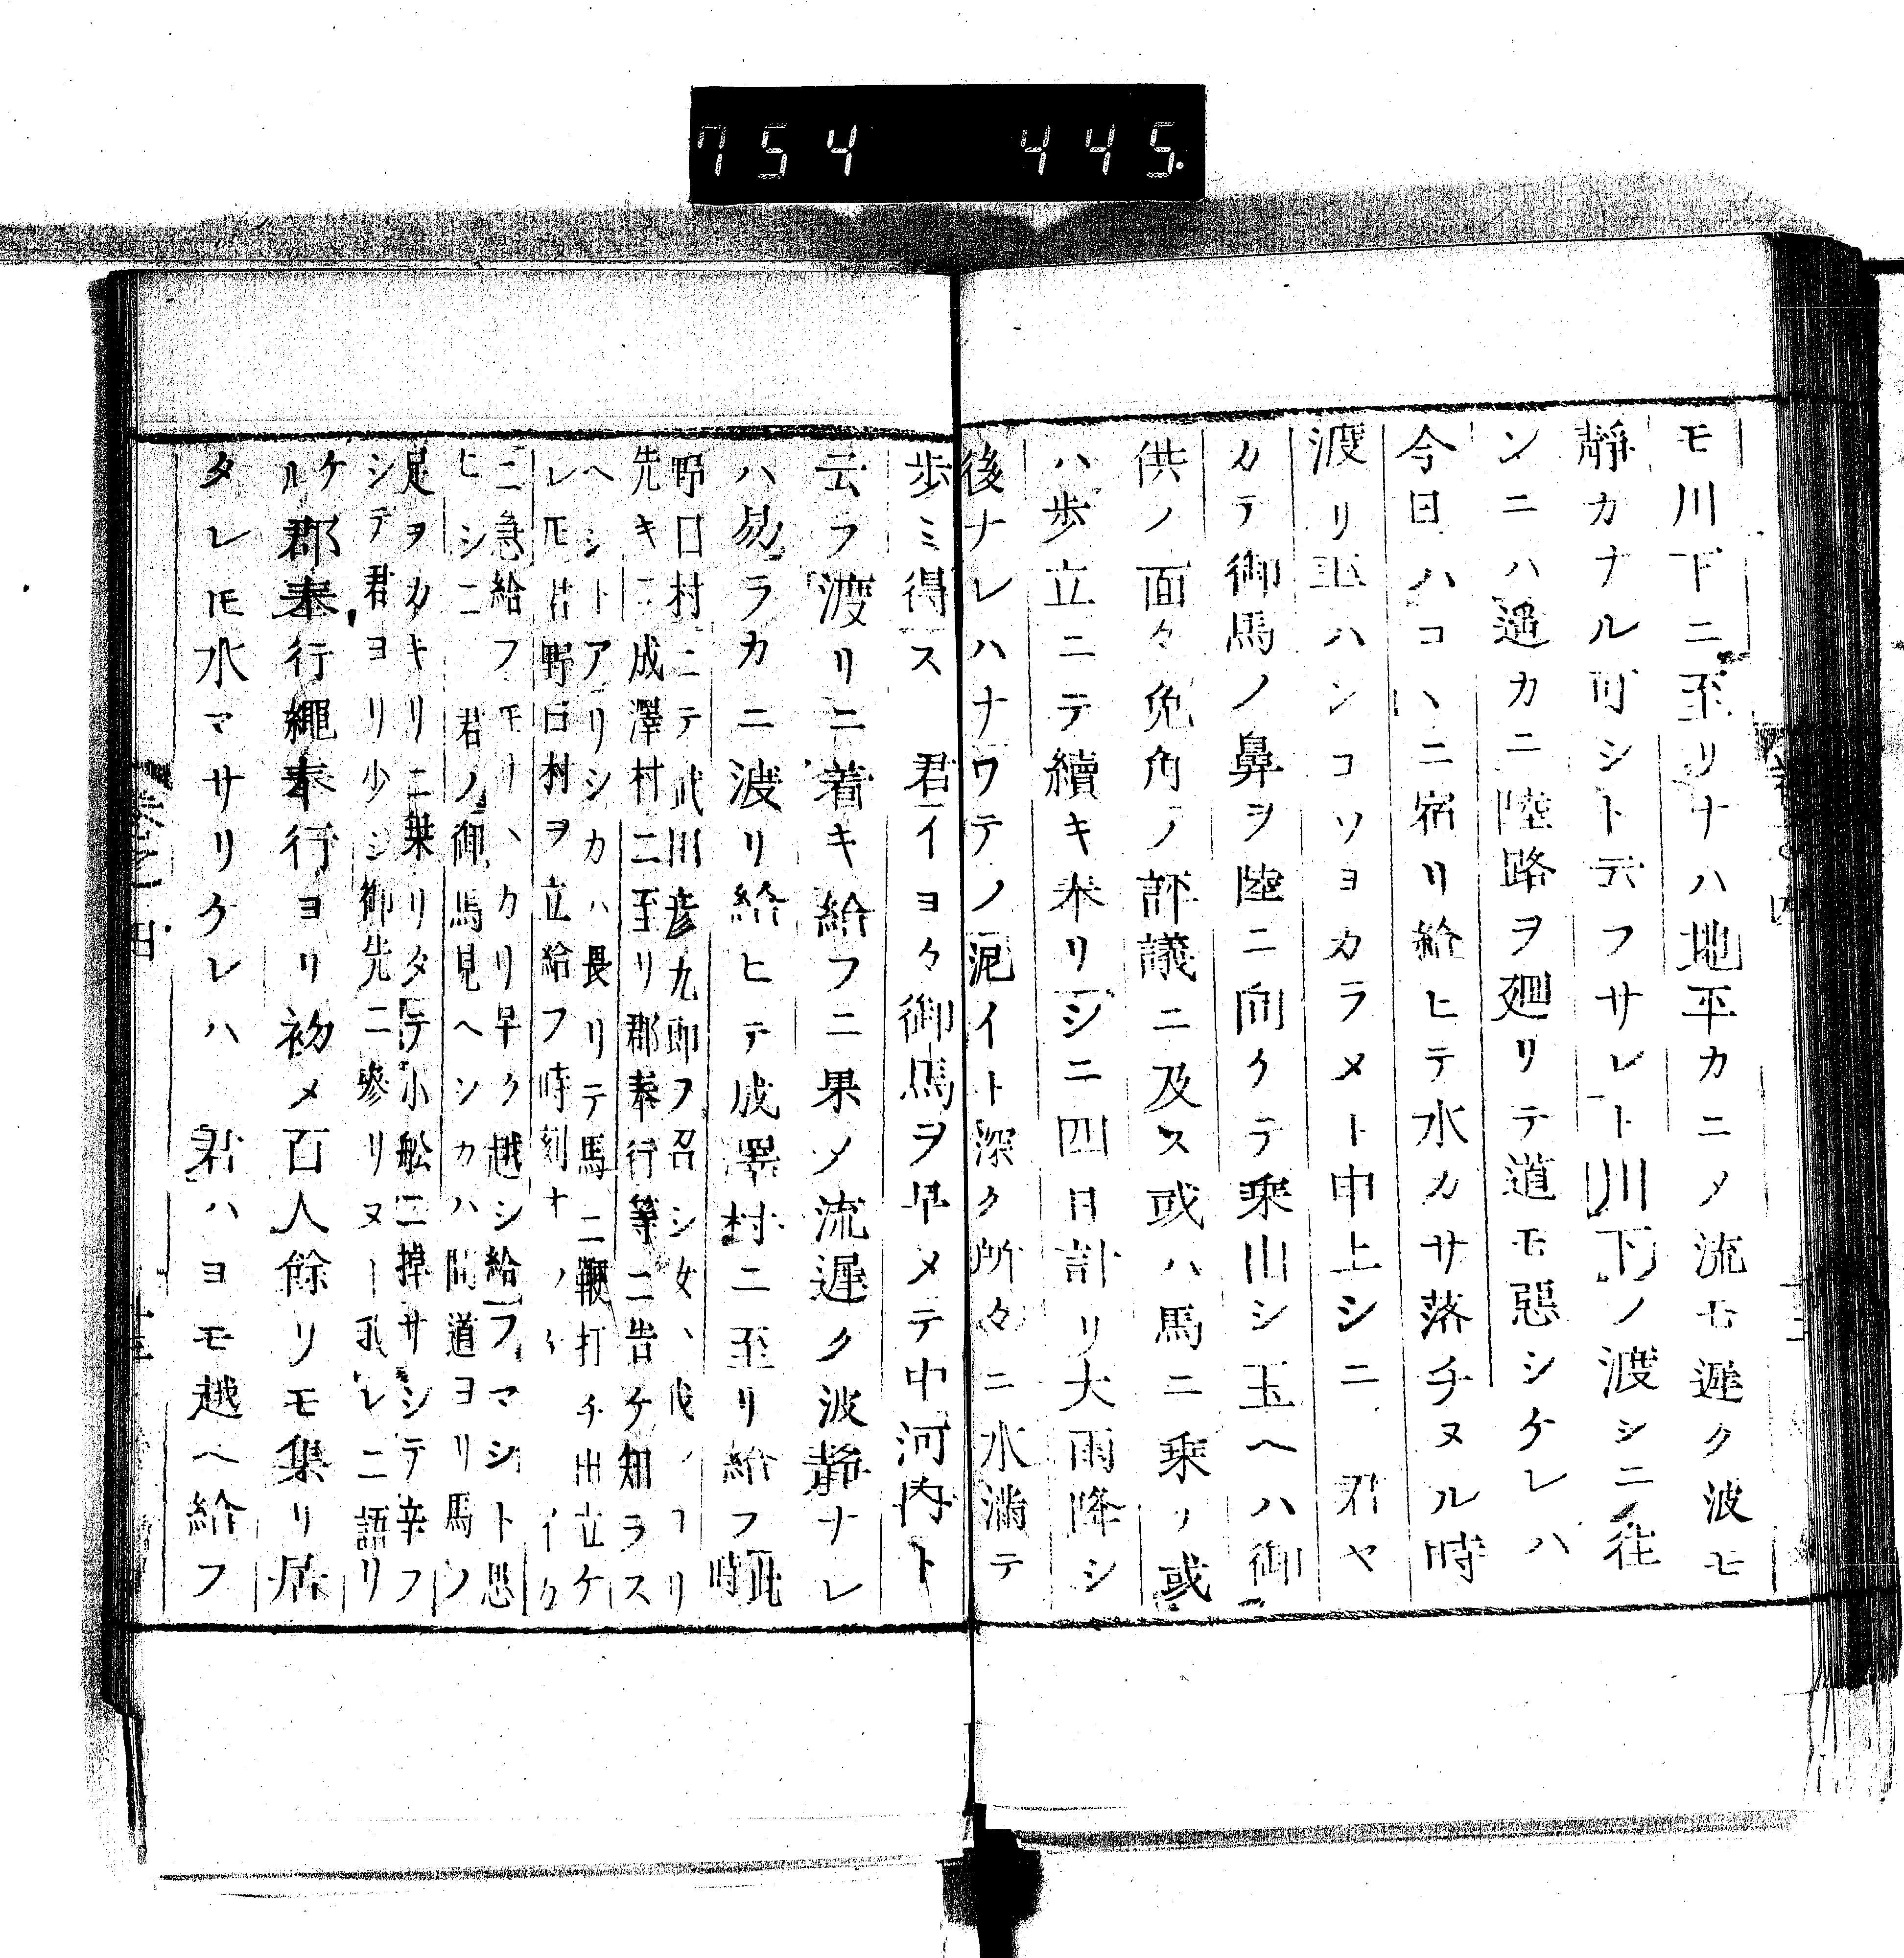 754 445.
モ川下ニ至リナハ地平カニ〆流モ遲ク波モ
靜カナル可シト云フサレト川下ノ渡シニ往
ンニハ遥カニ陸路ヲ廻リテ道モ惡シケレハ
今日ハコヽニ宿リ給ヒテ水カサ落チヌル時
渡リ玉ハンコソヨカラメト申上シニ 君ヤ
カテ御馬ノ鼻ヲ陸ニ向ケテ乘出シ玉ヘハ御
供ノ面々兔角ノ評議ニ及ス或ハ馬ニ乘リ或
ハ歩立ニテ續キ奉リシニ四日計リ大雨降シ
後ナレハナワテノ泥イト深ク所々ニ水滿テ
歩ミ得ス 君イヨ々御馬ヲ早メテ中河内ト
云フ渡リニ着キ給フニ果〆流遲ク波靜ナレ
ハ易ラカニ渡リ給ヒテ成澤村ニ至リ給フ此時
野口村ニテ武川彦九郎ヲ召シ女ヽ
先キニ成澤村ニ至リ郡奉行等ニ告ケ知ラス
ヘシトアリシカハ畏リテ馬ニ鞭打チ出立ケ
レ𪜈君野口村ヲ立給フ時刻
ニ急給フ カリ早ク越シ給フマシト思
ヒシニ 君ノ御馬見ヘシカハ間道ヨリ馬ノ
足ヲカキリニ乘リタテ小舩ニ掉サシテ辛フ
シテ君ヨリ少シ御先ニ參リヌ レニ語リ
ケル郡奉行繩奉行ヨリ初メ百人餘リモ集リ居
タレ𪜈水マサリケレハ 君ハヨモ越ヘ給フ